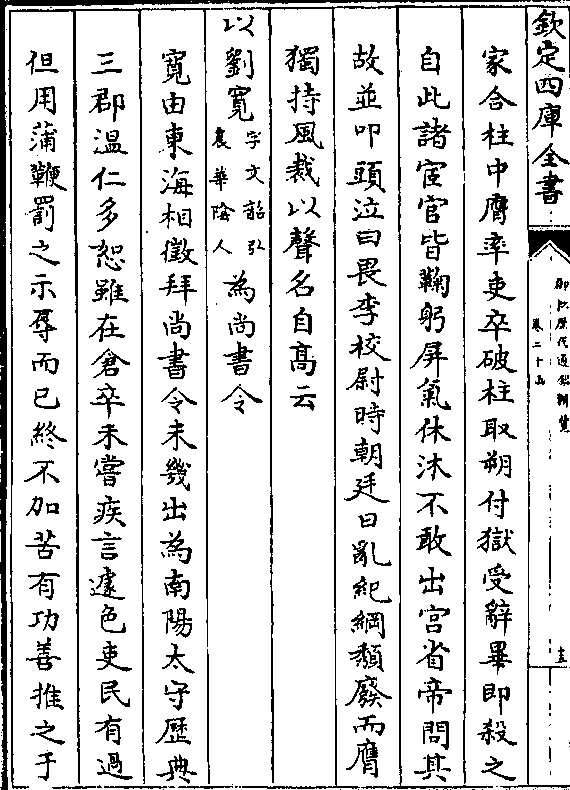 欽定四庫全書
御批歷代通鑑輯覽
卷二十五
家合柱中膺率吏卒破柱取朔付獄受辭畢即殺之
自此諸宦官皆鞠躬屏氣休沐不敢出宮省帝問其
故並叩頭泣曰畏李校尉時朝廷日亂紀綱頽廢而膺
獨持風裁以聲名自高云
以劉寛字文饒弘農華隂人為尚書令
寛由東海相徵拜尚書令未幾出為南陽太守歷典
三郡溫仁多恕雖在倉卒未嘗疾言遽色吏民有過
但用蒲鞭罰之示辱而已終不加苦有功善推之于